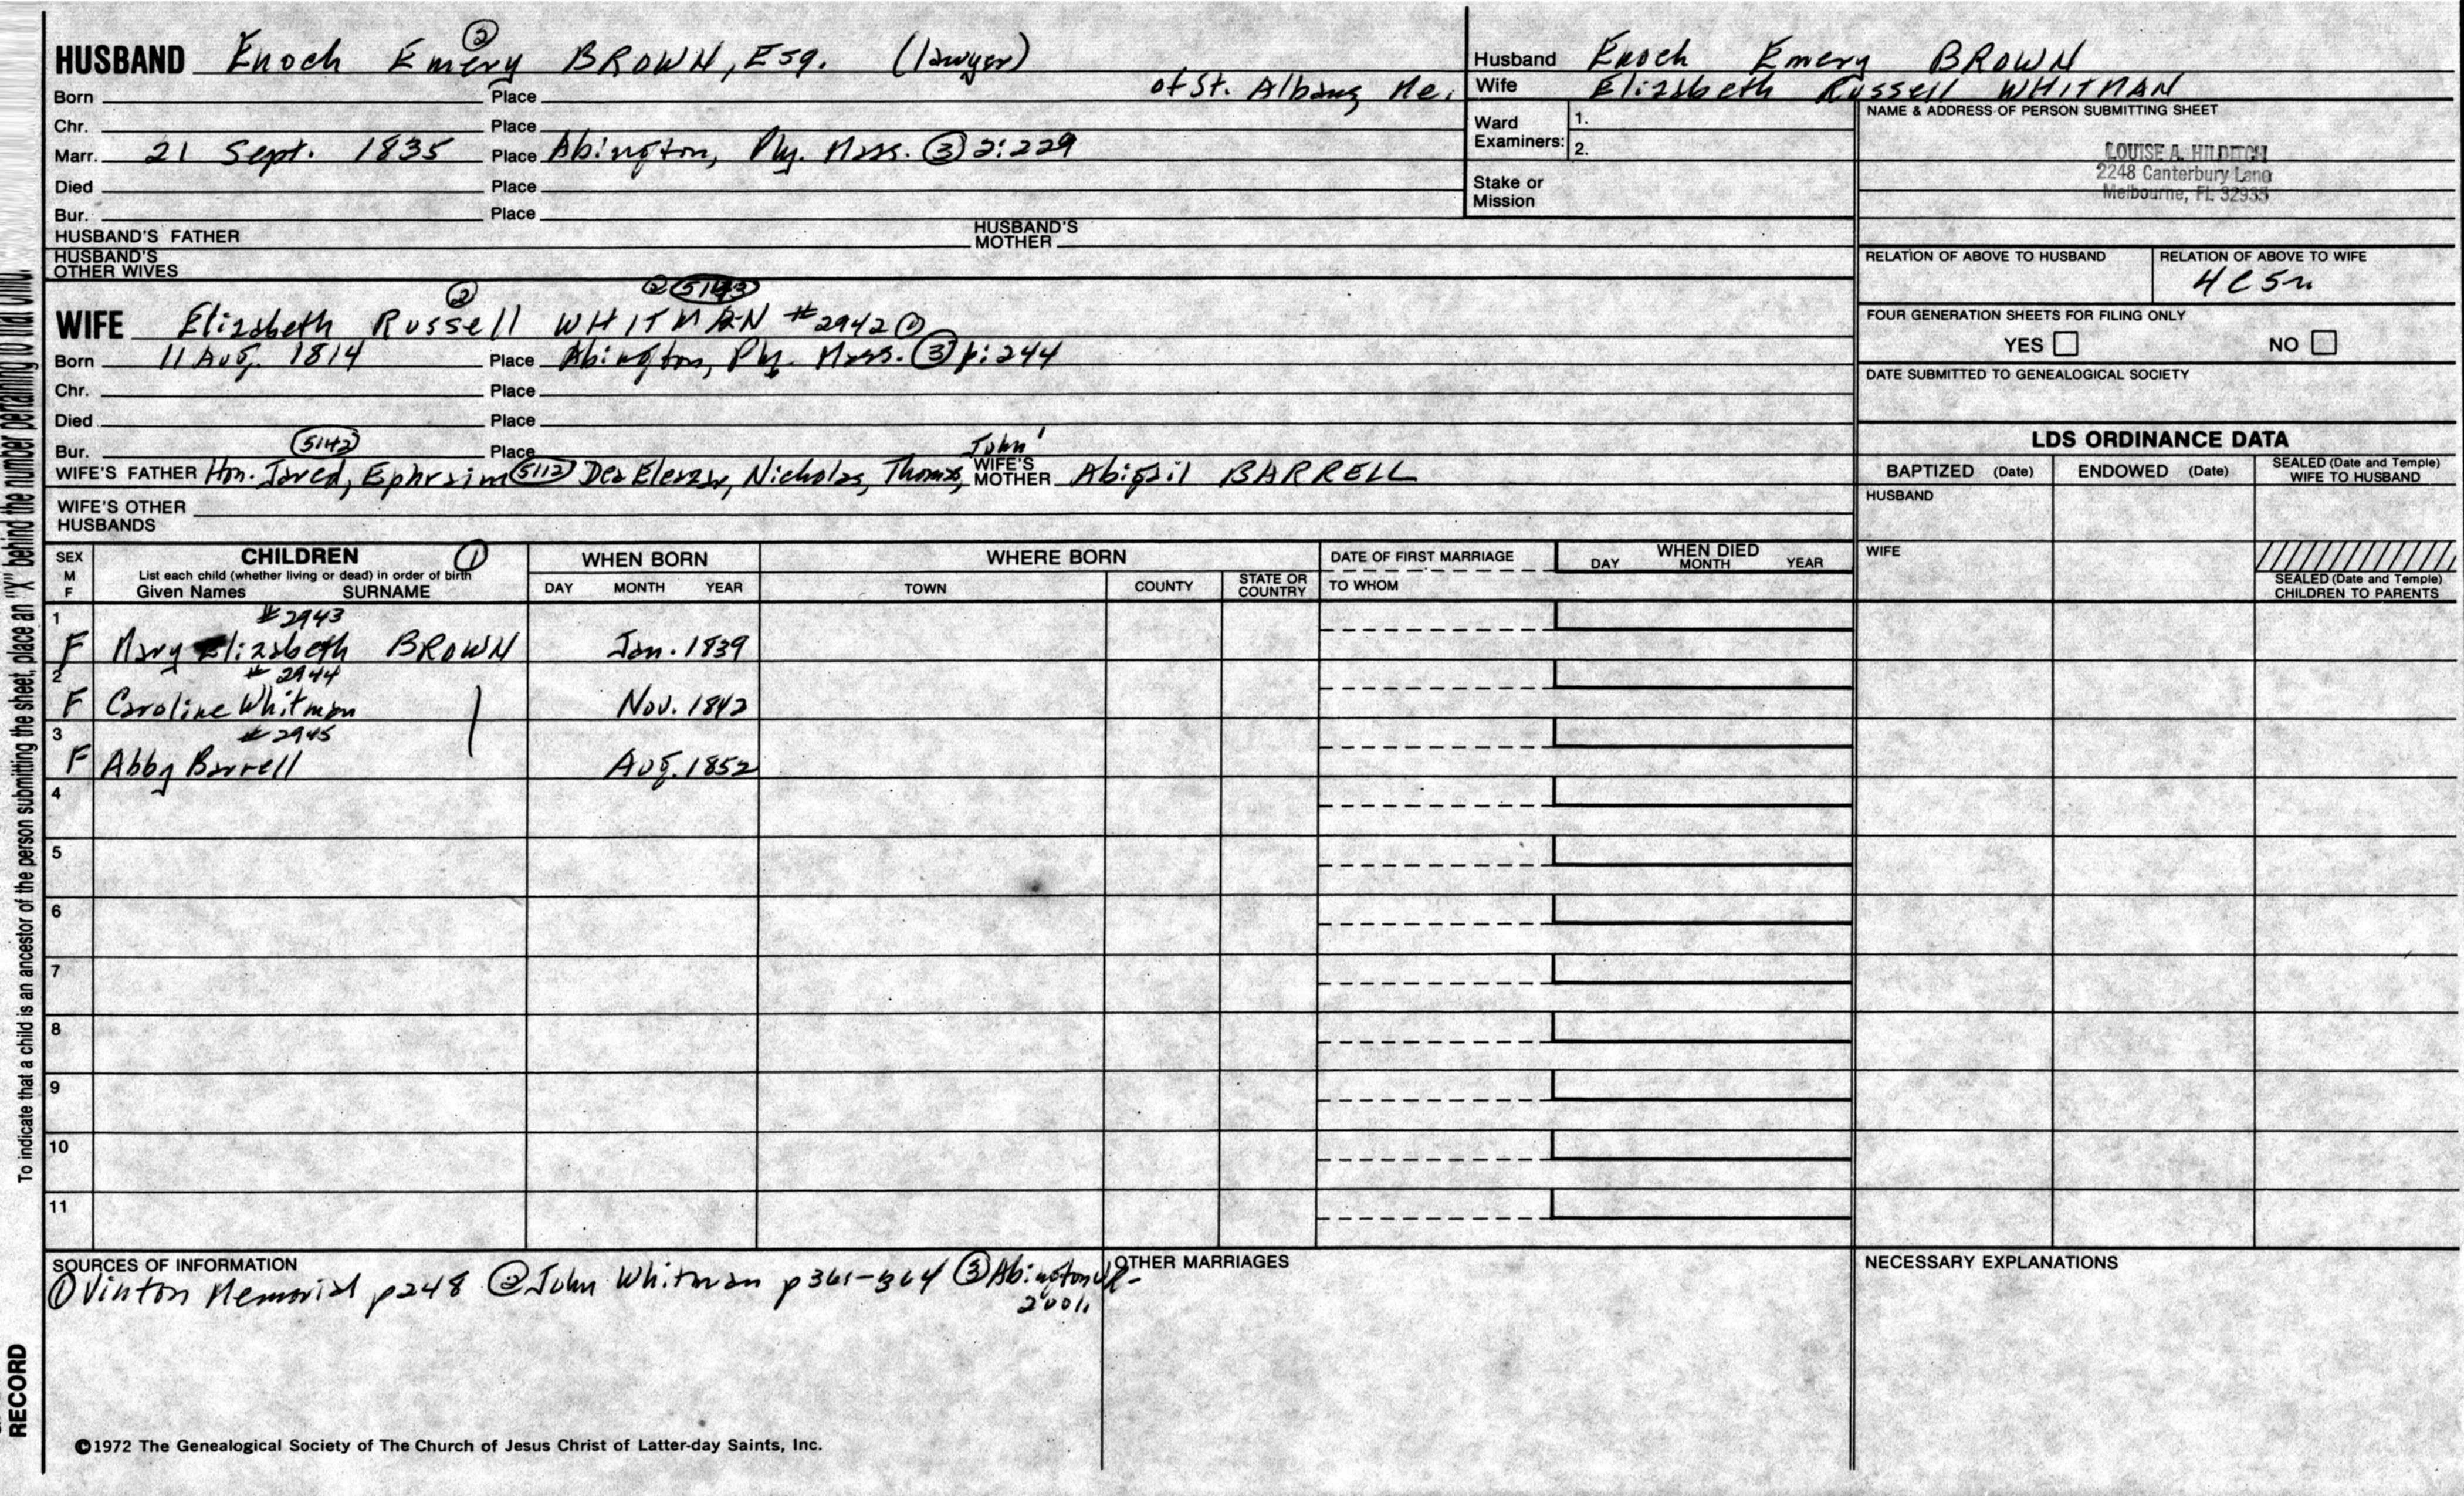 HUSBAND Enoch Emery ② BROWN, Esq. (lawyer)
of St. Albans Me.
Born Place
Chr. Place
Marr. 21 Sept. 1835 Place Abington, Ply. Mass. ③ 2:229
Died Place
Bur. Place
HUSBAND'S FATHER HUSBAND'S MOTHER
HUSBAND'S OTHER WIVES
② 5143
WIFE Elizabeth Russell ② WHITMAN #2942 ①
Born 11 Aug. 1814 Place Abington, Ply. Mass. ③ 1:244
Chr. Place
Died Place
Bur. Place
5142 John'
WIFE'S FATHER Hon. Jared, Ephraim 5112 Dea Eleazar, Nicholas, Thomas, WIFE'S MOTHER Abigail BARRELL
WIFE'S OTHER HUSBANDS
Husband Enoch Emery BROWN
Wife Elizabeth Russell WHITMAN
Ward Examiners: 1.
2.
Stake or Mission
NAME & ADDRESS OF PERSON SUBMITTING SHEET
LOUISE A. HILDITCH
2248 Canterbury Lane
Melbourne, FL 32935
RELATION OF ABOVE TO HUSBAND RELATION OF ABOVE TO WIFE
4C5r
FOUR GENERATION SHEETS FOR FILING ONLY
YES NO
DATE SUBMITTED TO GENEALOGICAL SOCIETY
LDS ORDINANCE DATA
BAPTIZED (Date) ENDOWED (Date) SEALED (Date and Temple) WIFE TO HUSBAND
HUSBAND
WIFE
SEALED (Date and Temple) CHILDREN TO PARENTS
SEX M F CHILDREN ① WHEN BORN WHERE BORN DATE OF FIRST MARRIAGE WHEN DIED
List each child (whether living or dead) in order of birth
Given Names SURNAME DAY MONTH YEAR TOWN COUNTY STATE OR COUNTRY TO WHOM DAY MONTH YEAR
1 #2943
F Mary Elizabeth BROWN Jan. 1839
2 #2944
F Caroline Whitman Nov. 1842
3 #2945
F Abby Barrell Aug. 1852
4
5
6
7
8
9
10
11
SOURCES OF INFORMATION
① Vinton Memorial p248 ② John Whitman p361-364 ③ Abington VR-
OTHER MARRIAGES
NECESSARY EXPLANATIONS
©1972 The Genealogical Society of The Church of Jesus Christ of Latter-day Saints, Inc.
To indicate that a child is an ancestor of the person submitting the sheet, place an "X" behind the number pertaining to that child.
RECORD